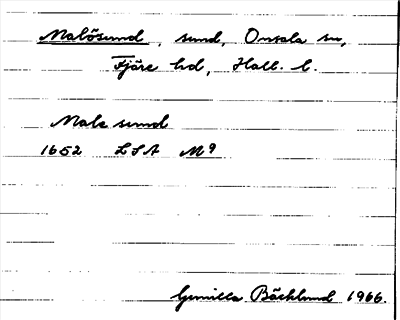 Malösund, sund, Onsala sn,
Fjäre hd, Hall. l.
Male sund
1652 LSA M9
Gunilla Bäcklund 1966.